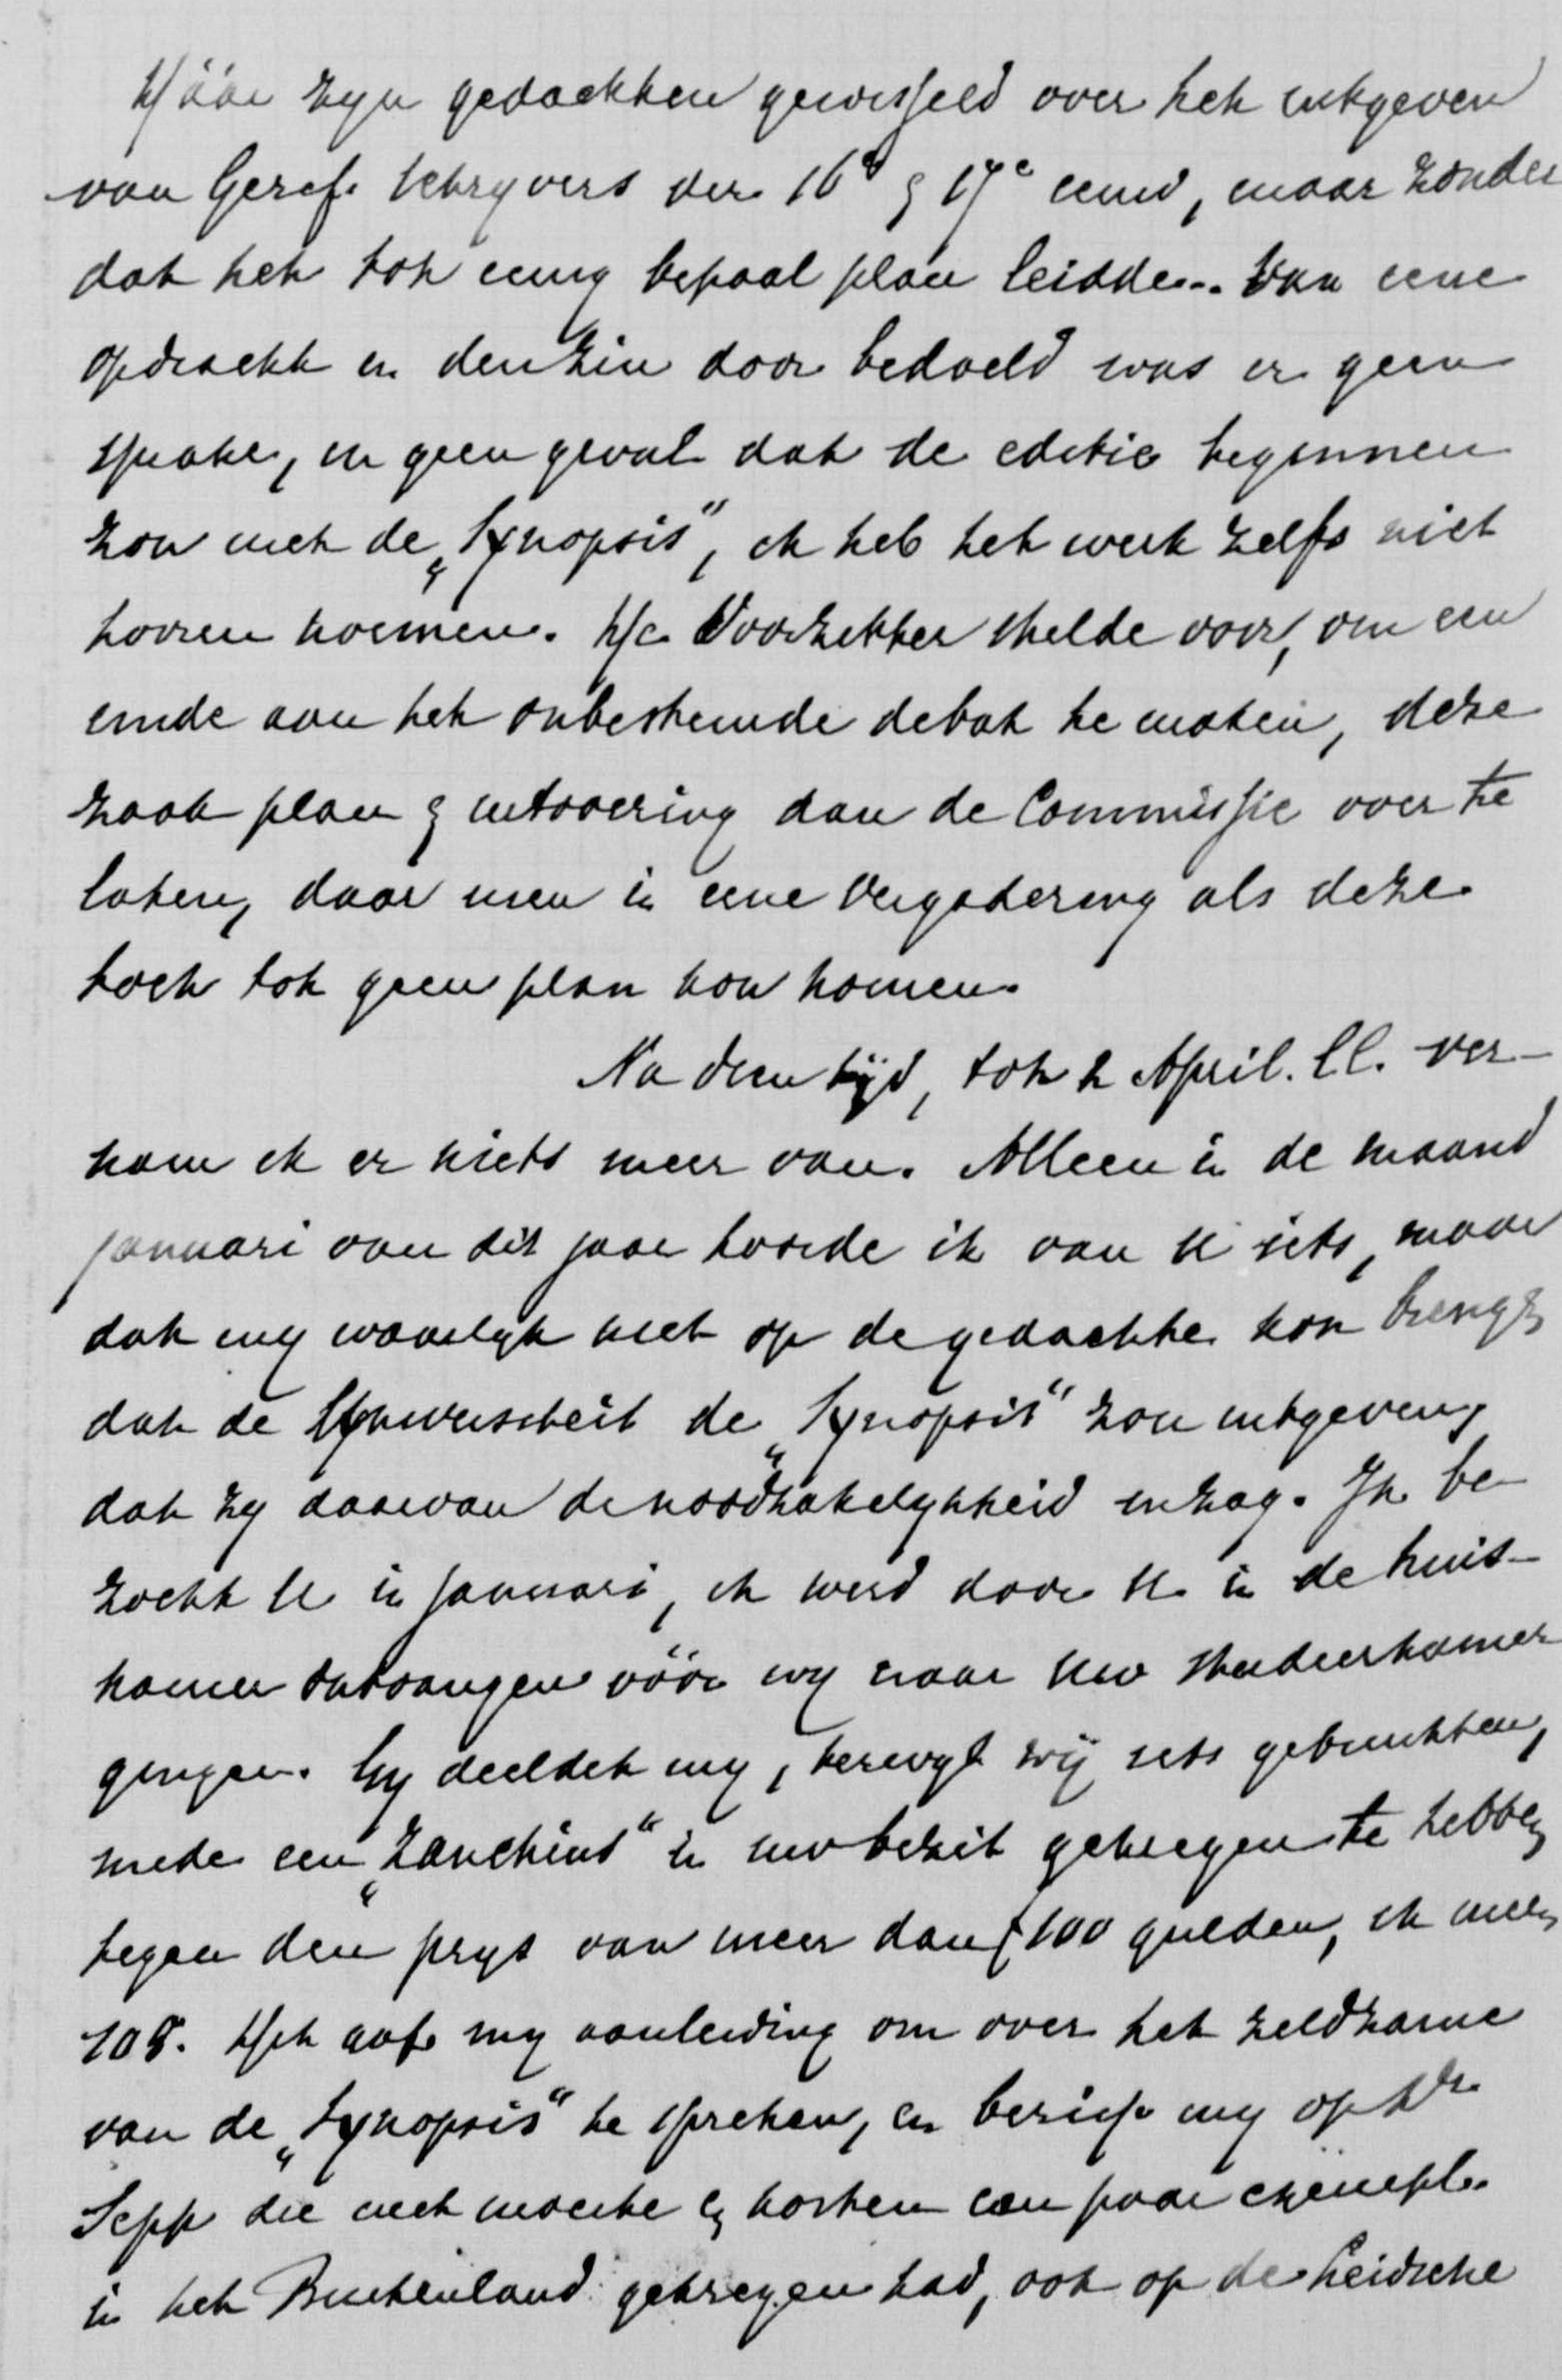 Daar zyn gedachten gewisseld over het uitgeven
van Geref. schryvers der 16e & 17e eeuw, maar zonder
dat het tot eenig bepaal plan leidde. Van eene
opdracht in den zin door bedoeld was er geen
sprake, in geen geval dat de editie beginnen
zou met de „Synopsis", ik heb het werk zelfs niet
hooren noemen. De Voorzitter stelde voor, om een
einde aan het onbestemde debat te maken, deze
zaak plan & uitvoering aan de Commissie over te
laten, daar men in eene vergadering als deze
toch tot geen plan kon komen.
Na dien tijd, tot 2 April. ll. ver-
nam ik er niets meer van. Alleen in de maand
januari van dit jaar hoorde ik van U iets, maar
dat my waarlyk niet op de gedachte kon brengen
dat de Universiteit de „Synopsis" zou uitgeven,
dat zy daarvan de noodzakelykheid inzag. Ik be-
zocht U in januari, ik werd door U in de huis-
kamer ontvangen vóór wy naar uw studeerkamer
gingen. Gy deeldet my, terwyl wij iets gebruikten,
mede een „Zanchius" in uw bezit gekregen te hebben
tegen den prys van meer dan f 100 gulden, ik meen
108. Het gaf my aanleiding om over het zeldzame
van de „Synopsis" te spreken, en beriep my op Dr
Sepp die met moeite & kosten een paar exempl.
in het Buitenland gekregen had, ook op de Leidsche